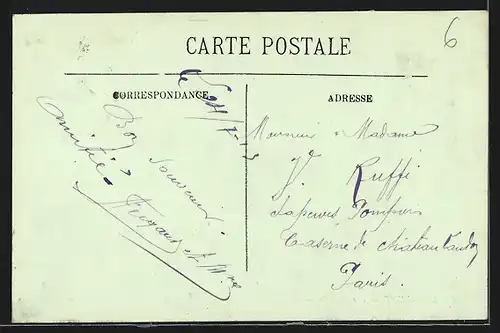 6
CARTE POSTALE
CORRESPONDANCE
ADRESSE
Le 24/7-13
Bon souvenir
amitiés
et Mme
Monsieur & Madame
V. Ruffi
Sapeurs Pompiers
Caserne de Chateau Landon
Paris.